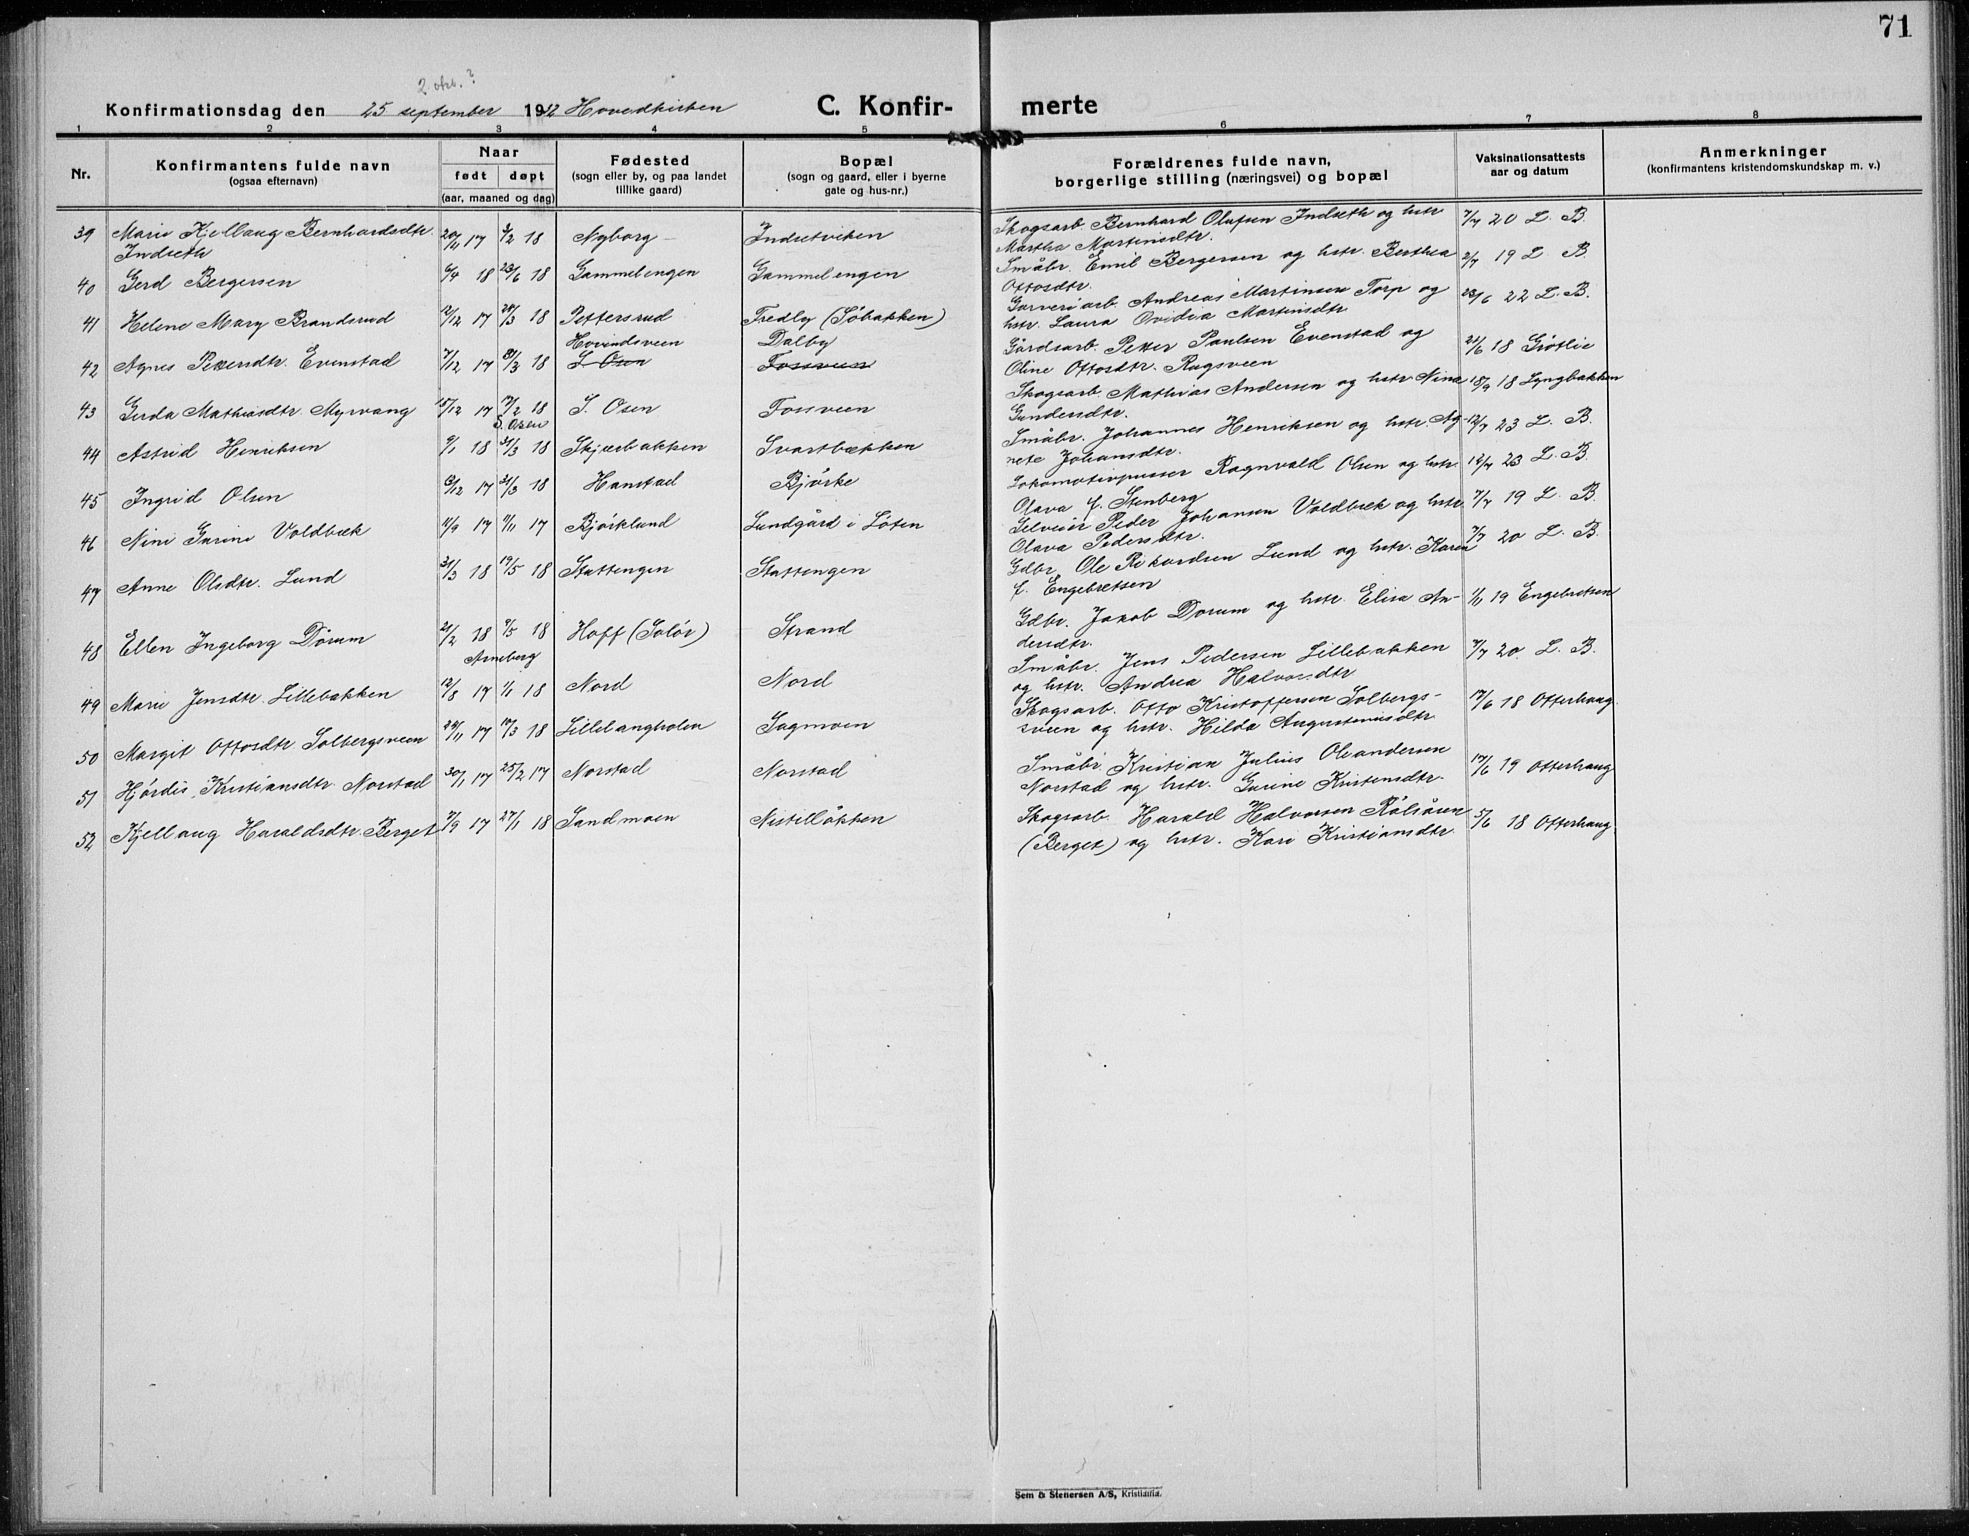 71
2 okt. ?
Konfirmationsdag den 25 september 1932 Hovedkirken C. Konfir- merte
1 2 3 4 5 6 7 8
Nr. Konfirmantens fulde navn (ogsaa efternavn) Naar født døpt (aar, maaned og dag) Fødested (sogn eller by, og paa landet tillike gaard) Bopæl (sogn og gaard, eller i byerne gate og hus-nr.) Forældrenes fulde navn, borgerlige stilling (næringsvei) og bopæl Vaksinationsattests aar og datum Anmerkninger (konfirmantens kristendomskundskap m. v.)
39 Marie Kjellaug Bernhardsdtr. 20/11 17 3/2 18 Nyborg Indsetviken Skogsarb. Bernhard Olufsen Indseth og hstr. 7/7 20 L. B.
Indseth Martha Martensdtr.
40 Gerd Bergersen 6/4 18 23/6 18 Gammelengen Gammelengen Småbr. Emil Bergersen og hstr. Berthea 2/7 19 L. B.
Ottosdtr.
41 Helene Mary Brandsrud 12/12 17 24/3 18 Pettersrud Fredly (Söbakken) Garveriarb. Andreas Martinsen Torp og 23/6 22 L. B.
hstr. Laura Ovidia Martinsdtr
Hovindsveen Dalby
42 Agnes Pettersdtr. Evenstad 7/12 17 31/3 18 S. Osen Fossveen Gårdsarb. Petter Paulsen Evenstad og 21/6 18 Grötlie
Oline Ottosdtr. Rugsveen
43 Gerda Mathiasdtr. Myrvang 15/12 17 17/2 18 S. Osen Fossveen Skogsarb. Mathias Andersen og hstr. Nina 18/9 18 Lyngbakken
S. Osen Gundersdtr.
44 Astrid Henriksen 9/1 18 31/3 18 Skjærbakken Svartbækken Småbr. Johannes Henriksen og hstr. Ag- 12/7 23 L. B.
nete Johansdtr.
45 Ingrid Olsen 13/12 17 31/3 18 Hanstad Björke Lokomotivpusser Ragnvald Olsen og hstr. 12/7 23 L. B.
Olava f. Stenberg
46 Nini Gurine Voldbæk 11/9 17 11/11 17 Bjørklund Lundgård i Löten Selveier Peder Johansen Voldbæk og hstr. 7/7 19 L. B.
Olava Pedersdtr.
47 Anne Olsdtr. Lund 31/3 18 19/5 18 Stattengen Stattengen Gdbr. Ole Rikardsen Lund og hstr. Karen 7/7 20 L. B.
f. Engebretsen
48 Ellen Ingeborg Dörum 21/2 18 9/5 18 Hoff (Solör) Strand Gdbr. Jakob Dorum og hstr. Elisa An- 1/11 19 Engebretsen
Arneberg dersdtr.
49 Marie Jensdtr. Lillebakken 12/8 17 1/1 18 Nord Nord Småbr. Jens Pedersen Lillebakken 7/7 20 L. B.
og hstr. Andrea Halvorsdtr
50 Margit Ottosdtr Solbergsveen 24/11 17 17/3 18 Lillelangholen Sagmoen Skogsarb. Otto Kristoffersen Solbergs- 17/6 18 Otterhaug
sveen og hstr. Hilda Augustinusdtr
51 Hjørdis Kristiansdtr. Norstad 30/1 17 25/2 17 Norstad Norstad Småbr. Kristian Julius Oleandersen 17/6 19 Otterhaug
Norstad og hstr. Gurine Kristensdtr.
52 Kjellaug Haraldsdtr. Berget 7/9 17 27/1 18 Sandmoen Nistilløkken Skogsarb. Harald Halvorsen Råsåsen 5/6 18 Otterhaug
(Berget) og hstr. Kari Kristiansdtr.
Sem & Stenersen A/S, Kristiania.